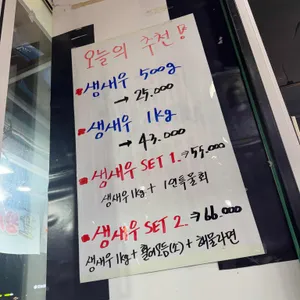 오늘의 추천!
생새우 500g
→ 25.000
생새우 1kg
→ 43.000
생새우 SET 1. → 55.000
생새우 1kg + 1인특물회
생새우 SET 2. → 66.000
생새우 1kg + 활어모듬(소) + 해물라면